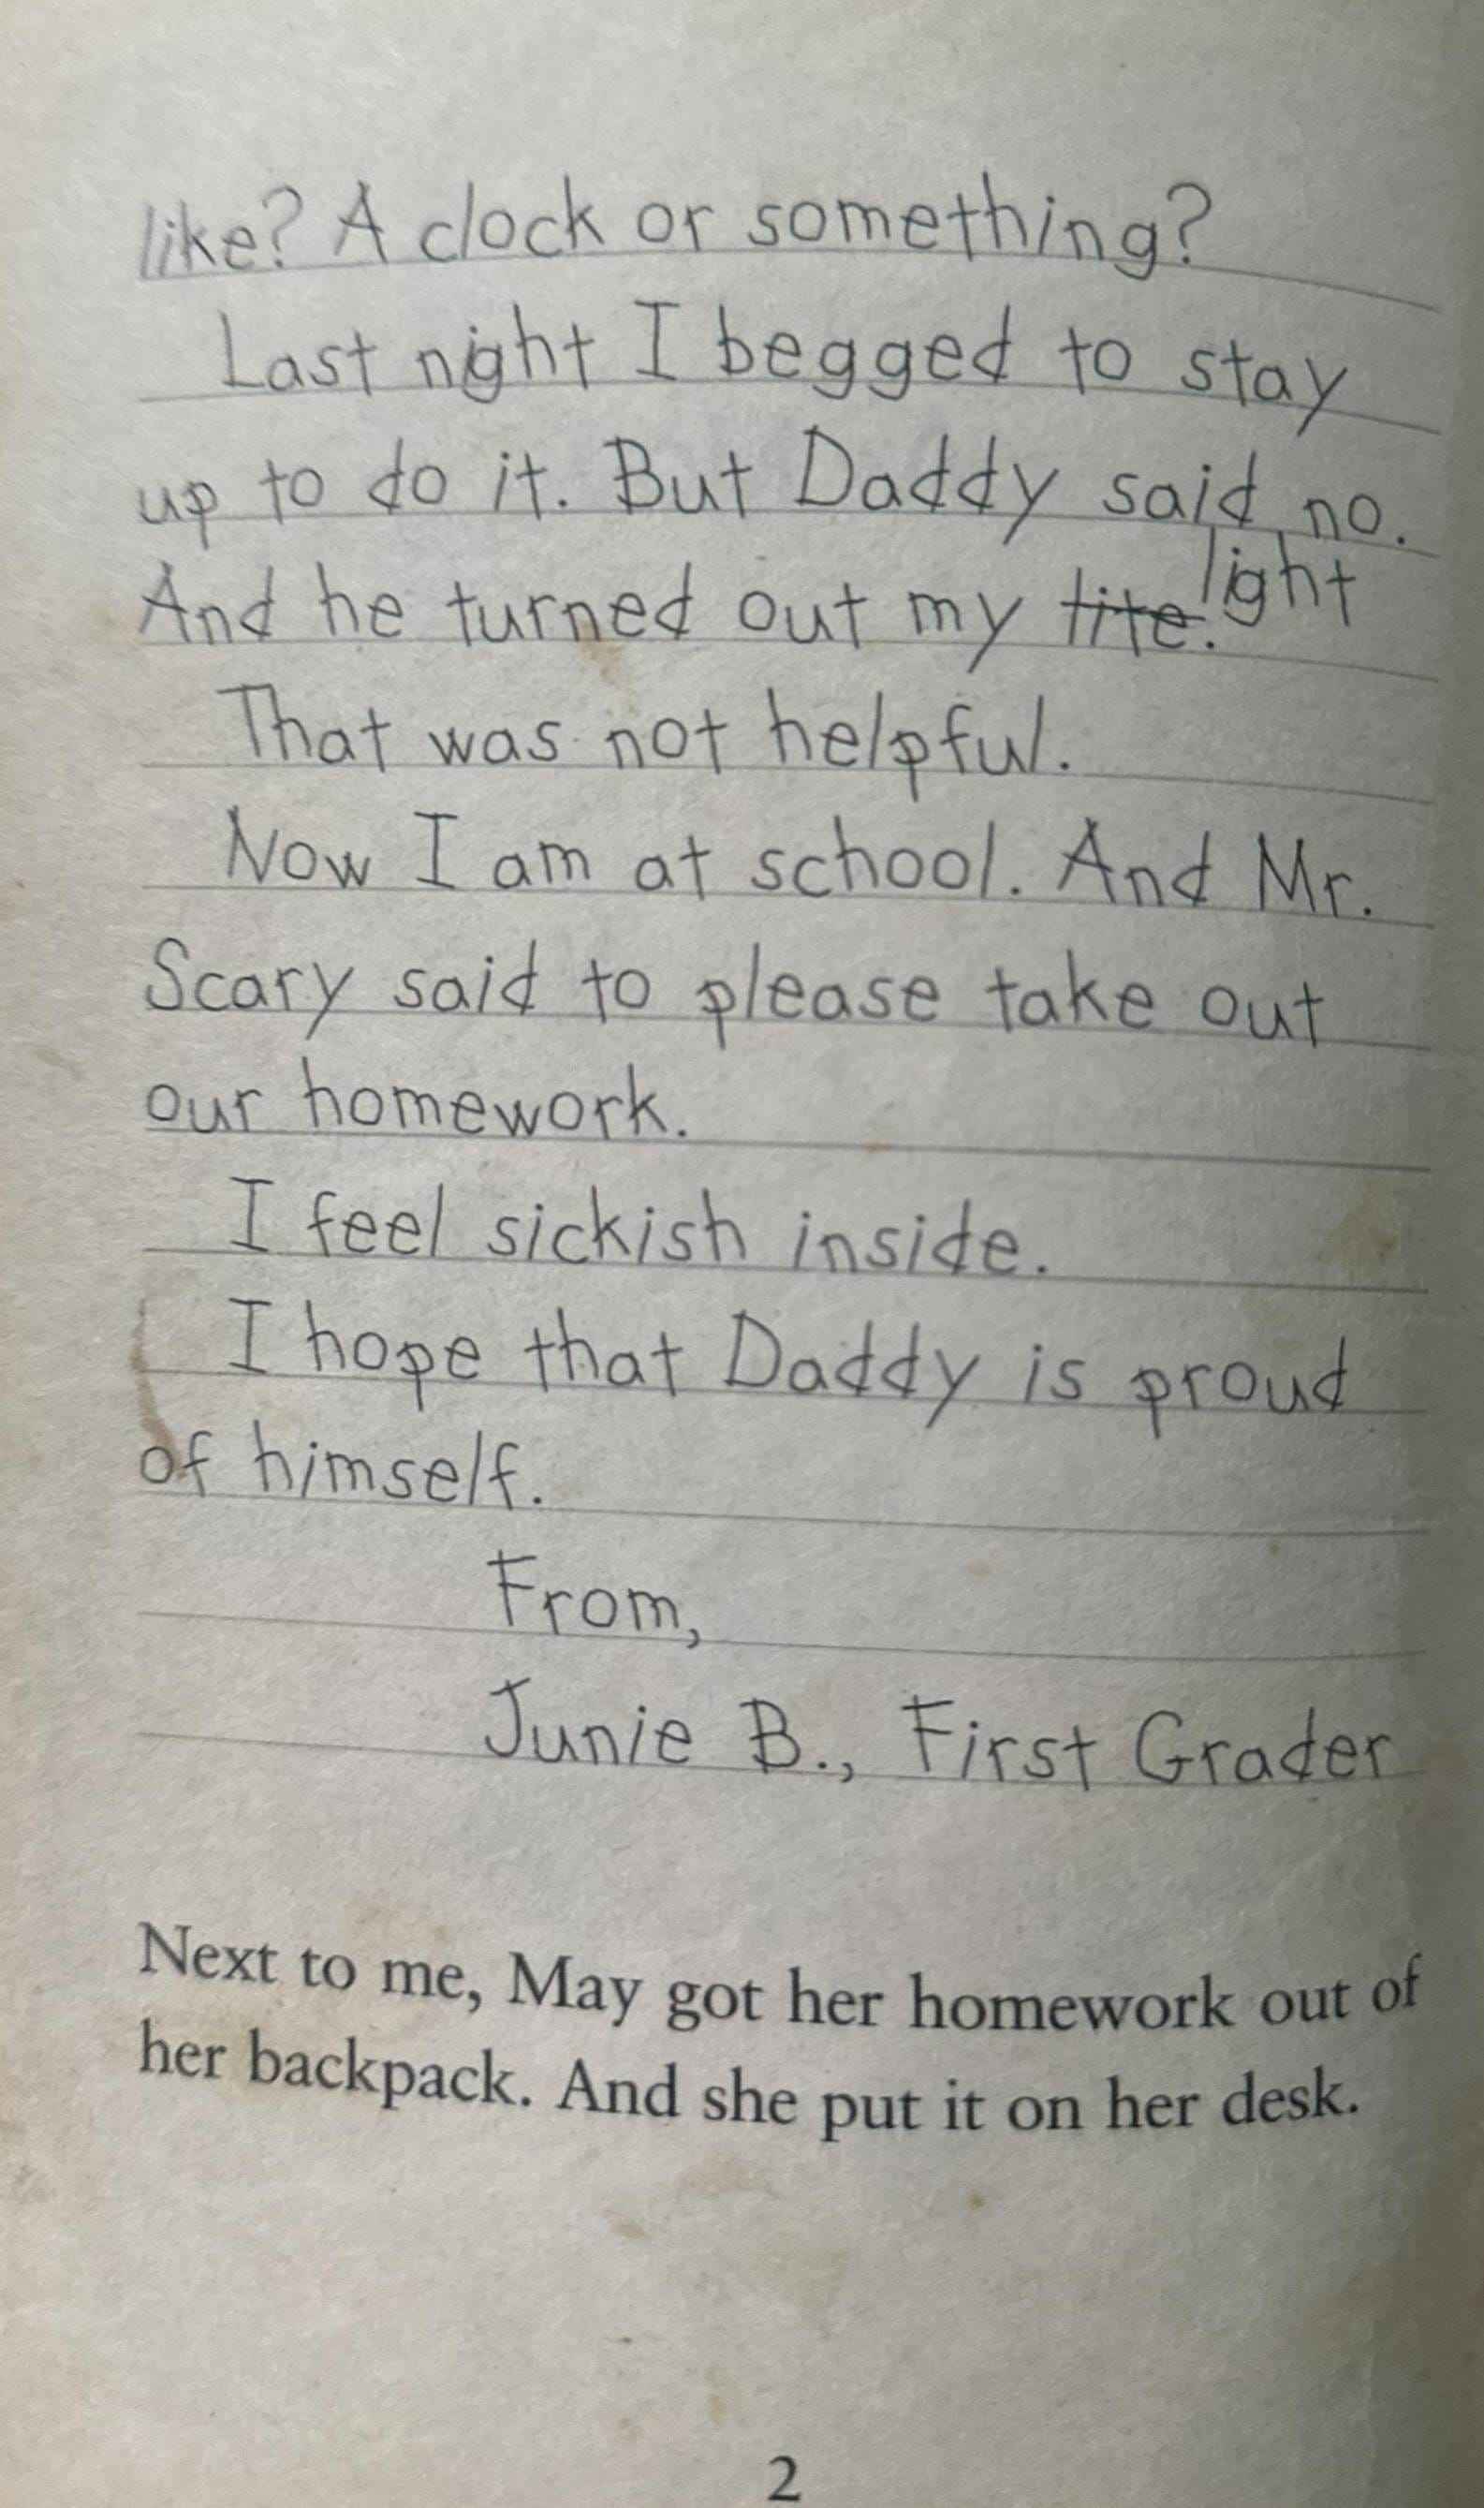 like? A clock or something?
Last night I begged to stay
up to do it. But Daddy said no.
And he turned out my lite. light
That was not helpful.
Now I am at school. And Mr.
Scary said to please take out
our homework.
I feel sickish inside.
I hope that Daddy is proud
of himself.
From,
Junie B., First Grader
Next to me, May got her homework out of
her backpack. And she put it on her desk.
2